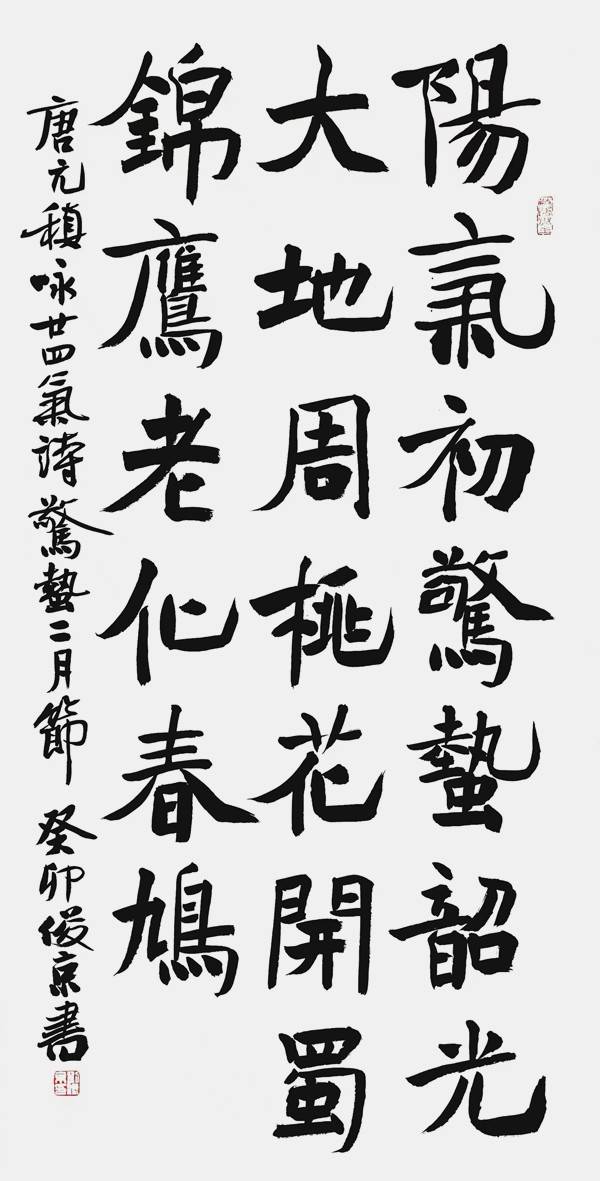 陽氣初驚蟄韶光
大地周桃花開蜀
錦鷹老化春鳩
唐元稹咏廿四氣詩驚蟄二月節 癸卯俊京書